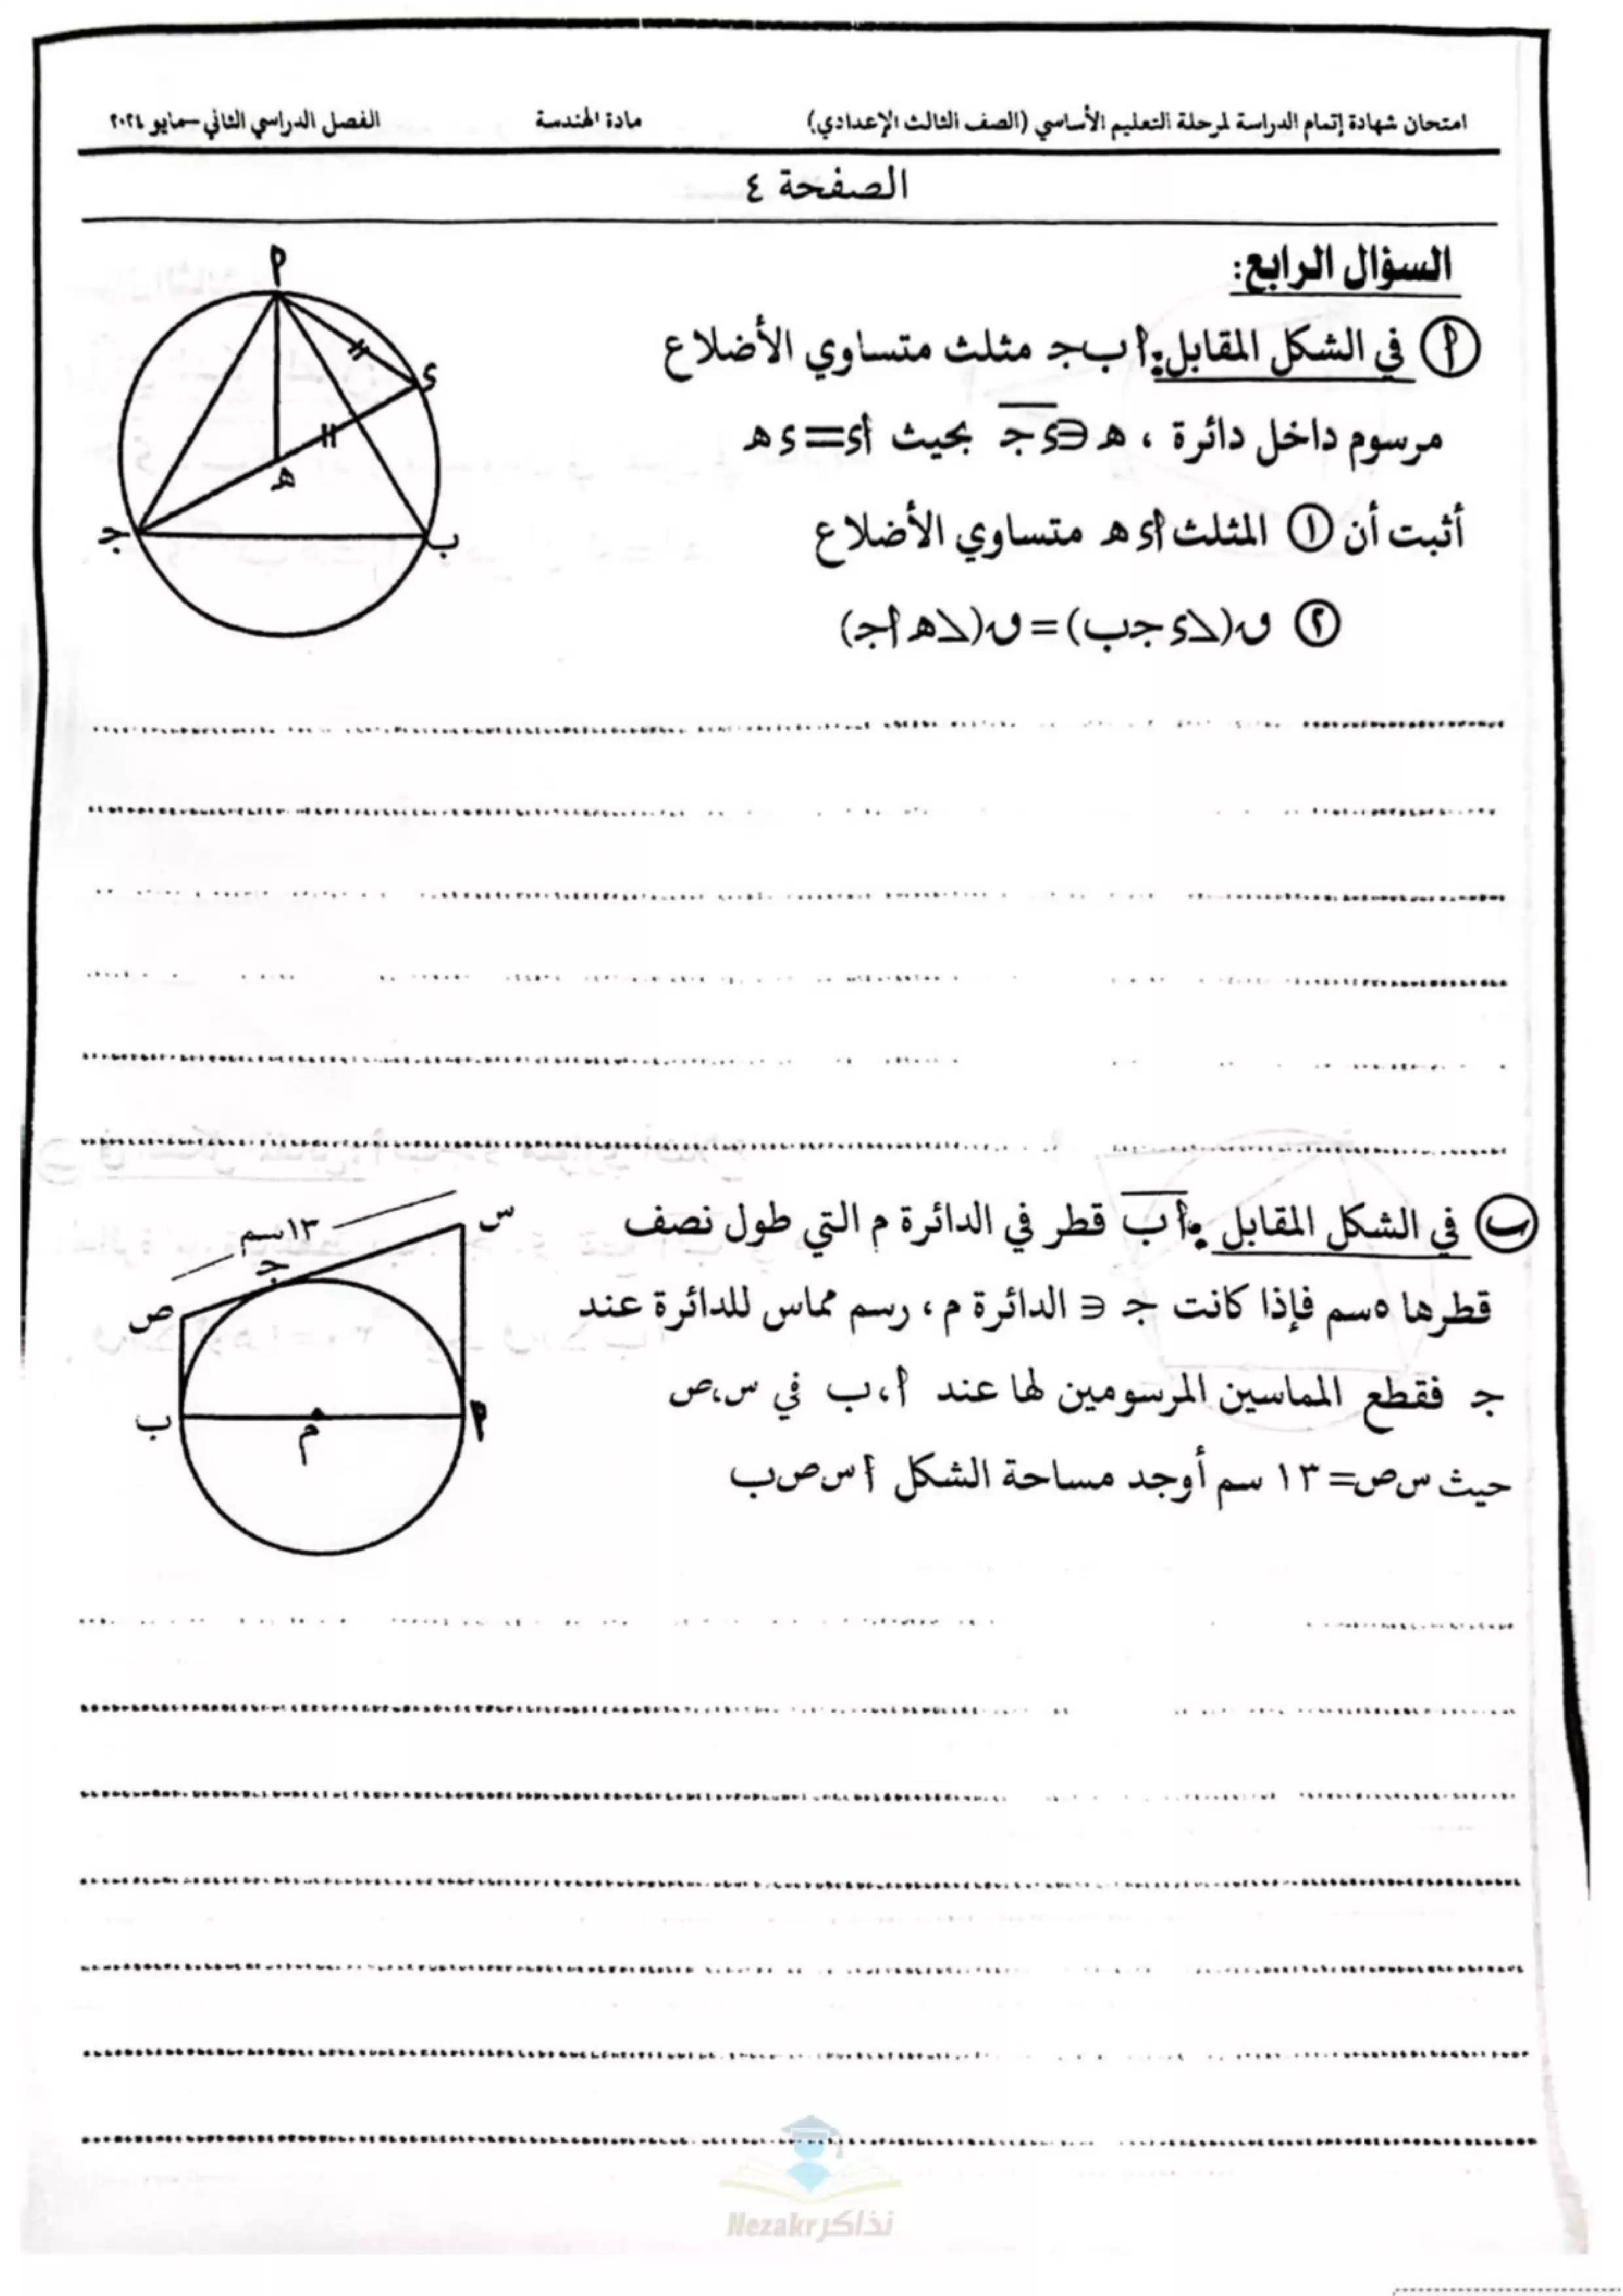 امتحان شهادة إتمام الدراسة لمرحلة التعليم الأساسي (الصف الثالث الإعدادي) مادة الهندسة الفصل الدراسي الثاني –مايو ٢٠٢٤
الصفحة ٤
السؤال الرابع:
أ في الشكل المقابل: أ ب جـ مثلث متساوي الأضلاع
مرسوم داخل دائرة ، هـ ∈ ء جـ بحيث أ ء = ء هـ
أثبت أن ١ المثلث أ ء هـ متساوي الأضلاع
٢ ق(∠ ء جـ ب) = ق(∠ هـ أ جـ)
أ
ء
هـ
جـ
ب
ب في الشكل المقابل : أ ب قطر في الدائرة م التي طول نصف
قطرها ٥سم فإذا كانت جـ ∈ الدائرة م ، رسم مماس للدائرة عند
جـ فقطع المماسين المرسومين لها عند أ ، ب في س،ص
حيث س ص= ١٣ سم أوجد مساحة الشكل أ س ص ب
س
١٣سم
جـ
ص
ب
م
أ
نذاكر Nezakr